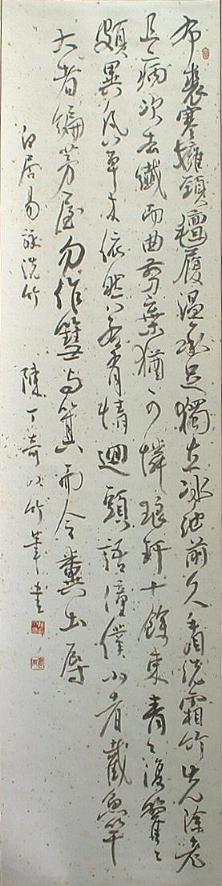 布裘寒擁頸氈履溫承足獨立冰池前久看洗霜竹先除老
且病次去纖而曲剪棄猶可憐琅玕十餘束青々復籊々
頗異凡草木依然若有情迴頭語僮僕小者截魚竿
大者編茅屋勿作篲與箕而令糞土辱
白居易詠洗竹 陳丁奇以竹筆書